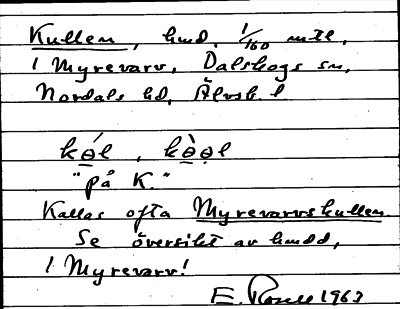 Kullen, hmd, 1/160 mtl,
i Myrevarv, Dalskogs sn,
Nordals hd, Älvsb. l
kə́l, kə̀əl
"på K."
Kallas ofta Myrevarvskullen.
Se översikt av hmdd,
i Myrevarv!
E. Rosell 1963